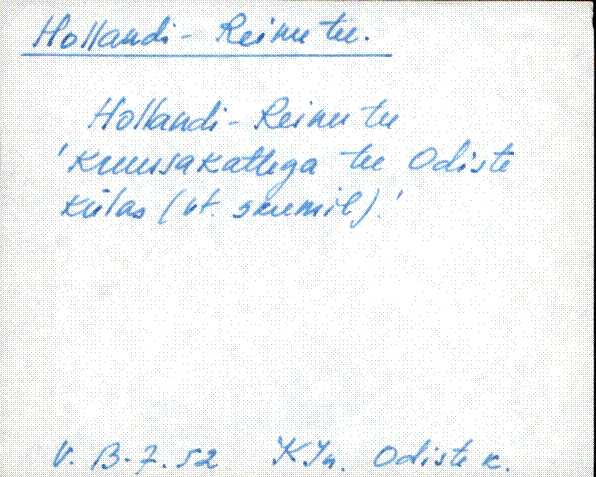 Hollandi-Reinu tee.
Hollandi-Reinu tee
'kruusakattega tee Odiste
külas (vt. skeemil).'
V. B-7.52 KJn. Odiste k.